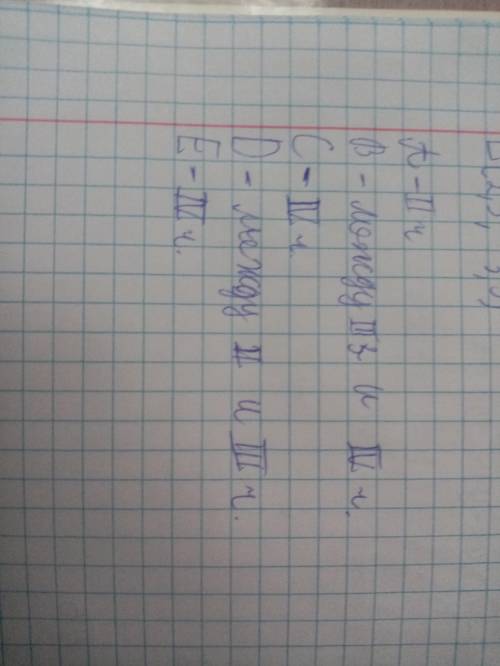 A - II ч
B - между III и IV ч.
C - IV ч.
D - между II и III ч.
E - III ч.